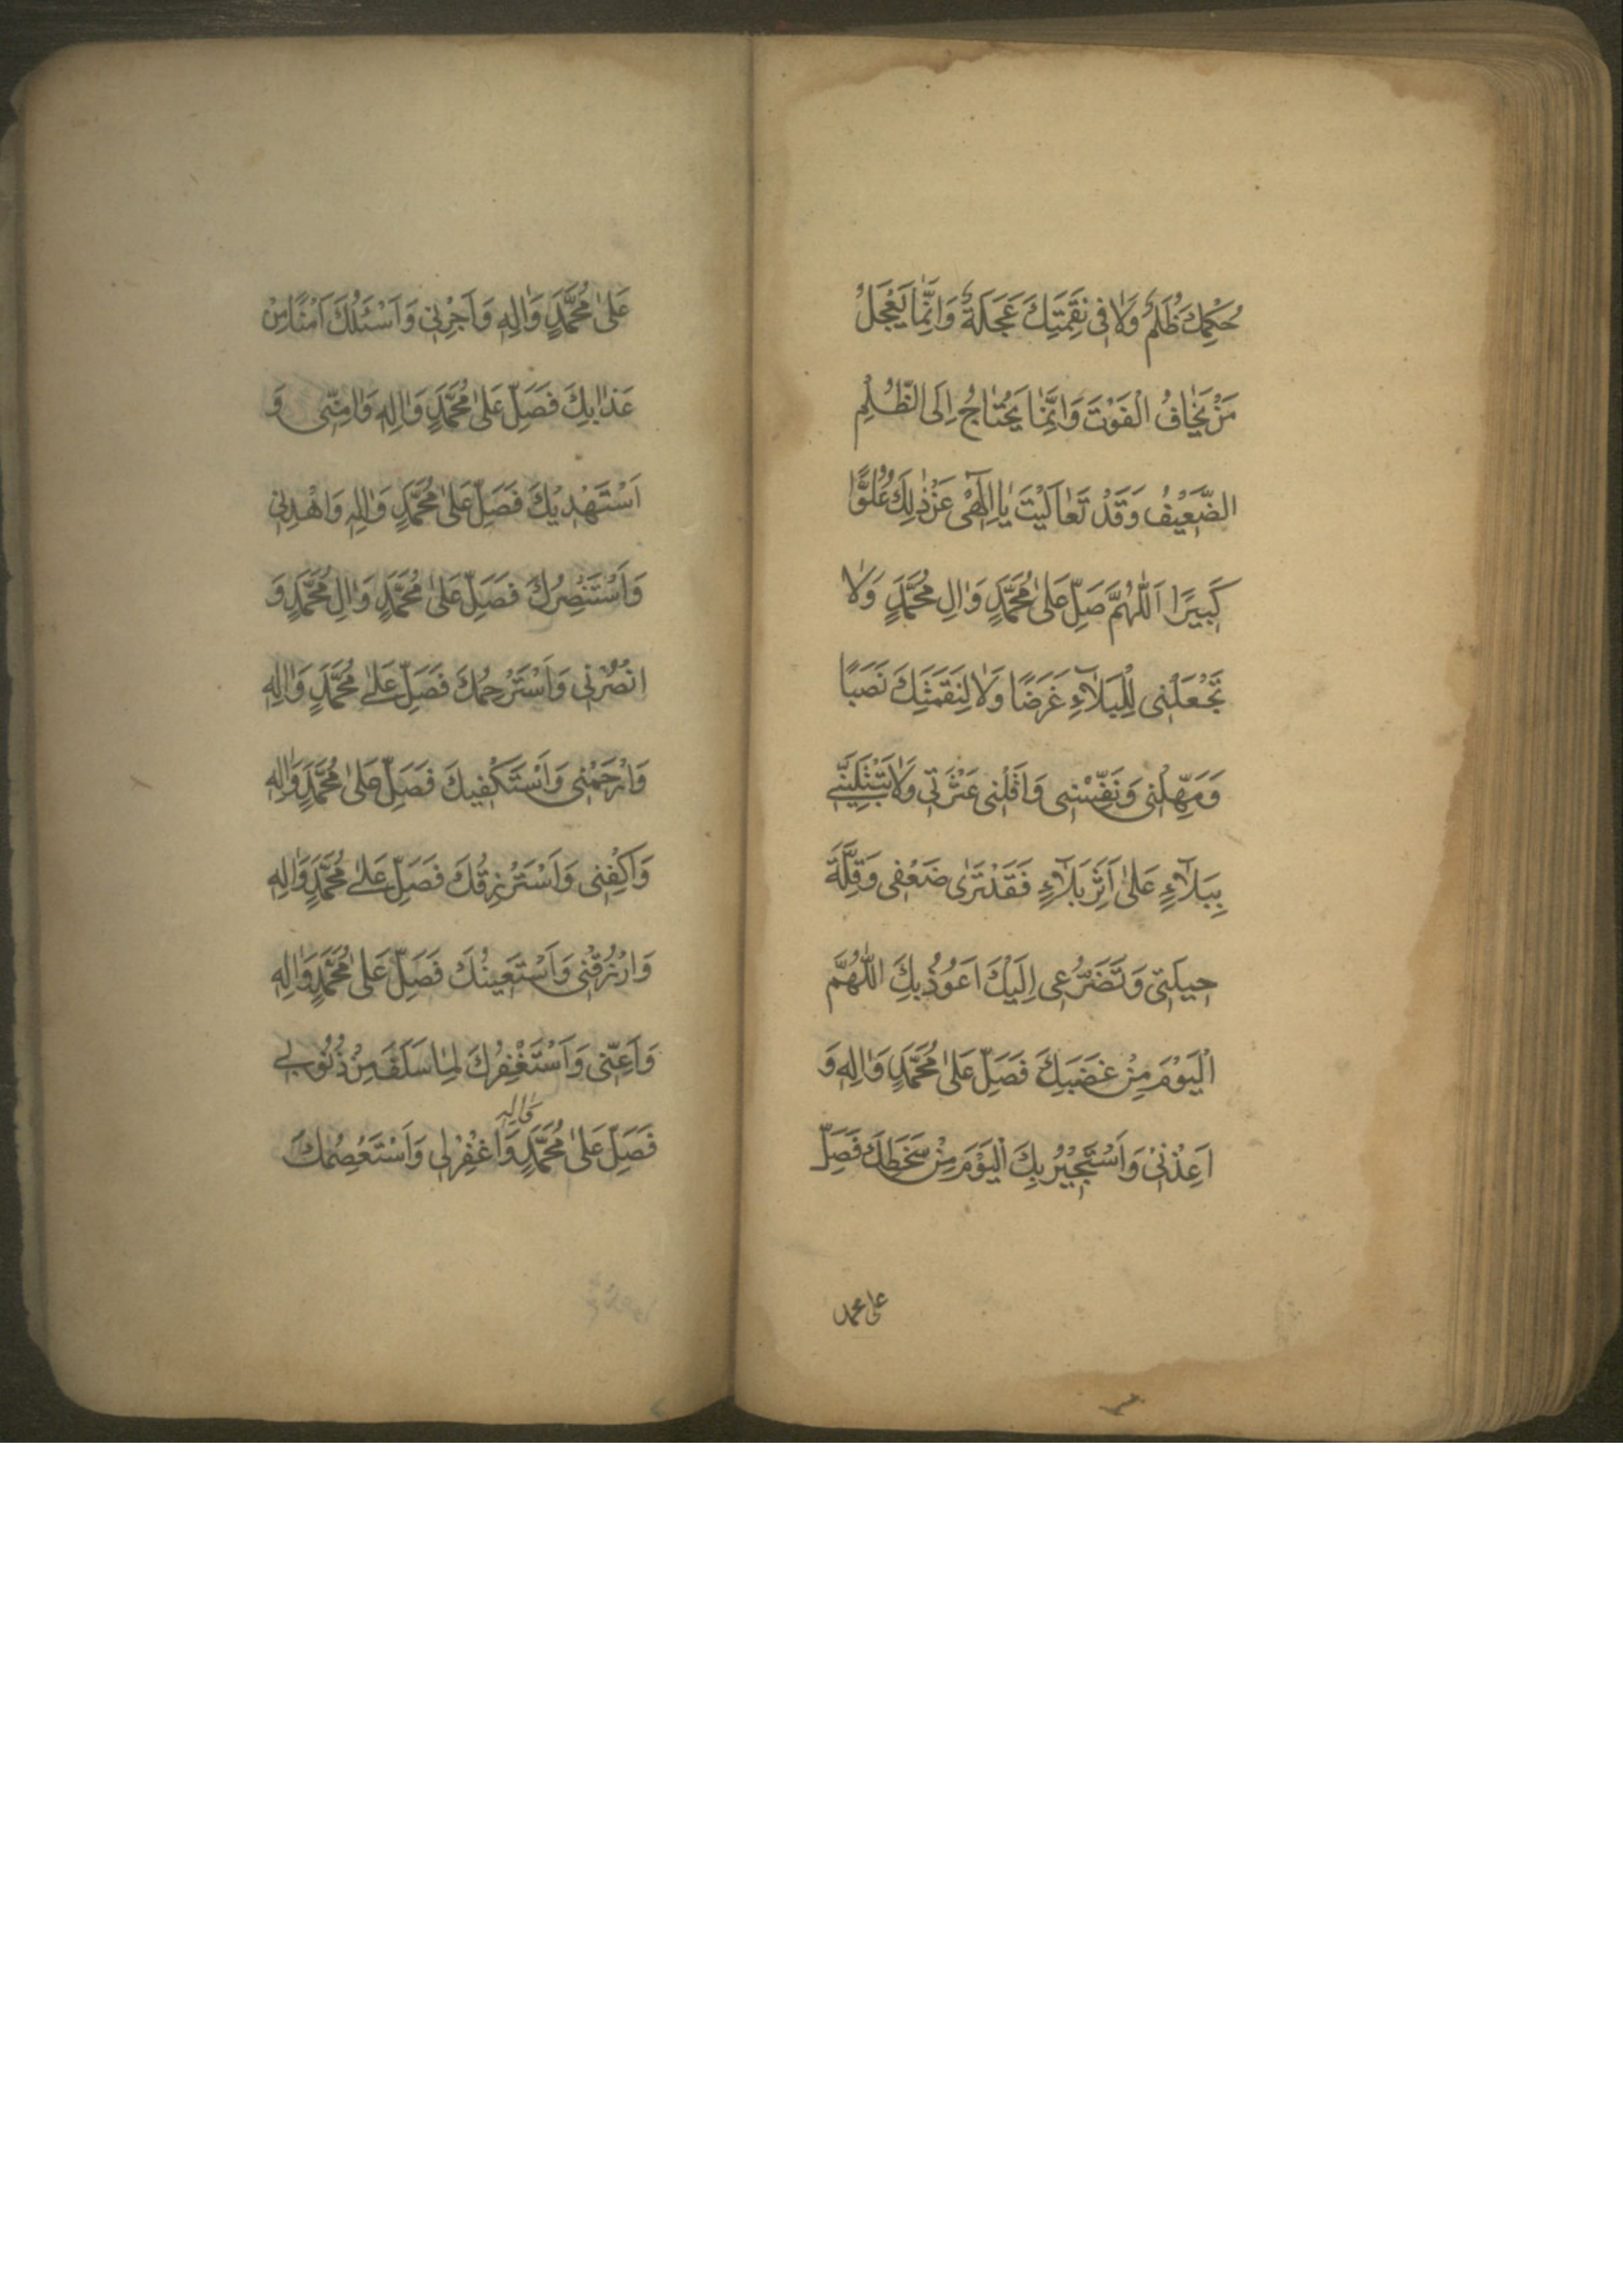 حُكْمِكَ ظُلْمٌ وَلَا فِي نَقِمَتِكَ عَجَلَةٌ وَاِنَّمَا يَعْجَلُ
مَنْ يَخَافُ الْفَوْتَ وَاِنَّمَا يَحْتَاجُ اِلَى الظُّلْمِ
الضَّعِيْفُ وَقَدْ تَعَالَيْتَ يَا اِلٰهِي عَنْ ذٰلِكَ عُلُوًّا
كَبِيرًا اَللّٰهُمَّ صَلِّ عَلىٰ مُحَمَّدٍ وَاٰلِ مُحَمَّدٍ وَلَا
تَجْعَلْنِي لِلْبَلَآءِ غَرَضًا وَلَا لِنَقِمَتِكَ نَصَبًا
وَمَهِّلْنِي وَنَفِّسْنِي وَاَقِلْنِي عَثْرَتِي وَلَا تَبْتَلِيَنِّي
بِبَلَآءٍ عَلىٰ اَثَرِ بَلَآءٍ فَقَدْ تَرٰى ضَعْفِي وَقِلَّةَ
حِيلَتِي وَتَضَرُّعِي اِلَيْكَ اَعُوْذُ بِكَ اللّٰهُمَّ
الْيَوْمَ مِنْ غَضَبِكَ فَصَلِّ عَلىٰ مُحَمَّدٍ وَاٰلِهِ وَ
اَعِذْنِي وَاَسْتَجِيْرُ بِكَ الْيَوْمَ مِنْ سَخَطِكَ فَصَلِّ
على محمد
عَلىٰ مُحَمَّدٍ وَاٰلِهِ وَاَجِرْنِي وَاَسْئَلُكَ اَمْنًا مِنْ
عَذَابِكَ فَصَلِّ عَلىٰ مُحَمَّدٍ وَاٰلِهِ وَاٰمِنِّي وَ
اَسْتَهْدِيْكَ فَصَلِّ عَلىٰ مُحَمَّدٍ وَاٰلِهِ وَاهْدِنِي
وَاَسْتَنْصِرُكَ فَصَلِّ عَلىٰ مُحَمَّدٍ وَاٰلِ مُحَمَّدٍ وَ
انْصُرْنِي وَاَسْتَرْحِمُكَ فَصَلِّ عَلىٰ مُحَمَّدٍ وَاٰلِهِ
وَارْحَمْنِي وَاَسْتَكْفِيكَ فَصَلِّ عَلىٰ مُحَمَّدٍ وَاٰلِهِ
وَاكْفِنِي وَاَسْتَرْزِقُكَ فَصَلِّ عَلىٰ مُحَمَّدٍ وَاٰلِهِ
وَارْزُقْنِي وَاَسْتَعِينُكَ فَصَلِّ عَلىٰ مُحَمَّدٍ وَاٰلِهِ
وَاَعِنِّي وَاَسْتَغْفِرُكَ لِمَا سَلَفَ مِنْ ذُنُوْبِي
وَاٰلِهِ
فَصَلِّ عَلىٰ مُحَمَّدٍ وَاغْفِرْلِي وَاَسْتَعْصِمُكَ